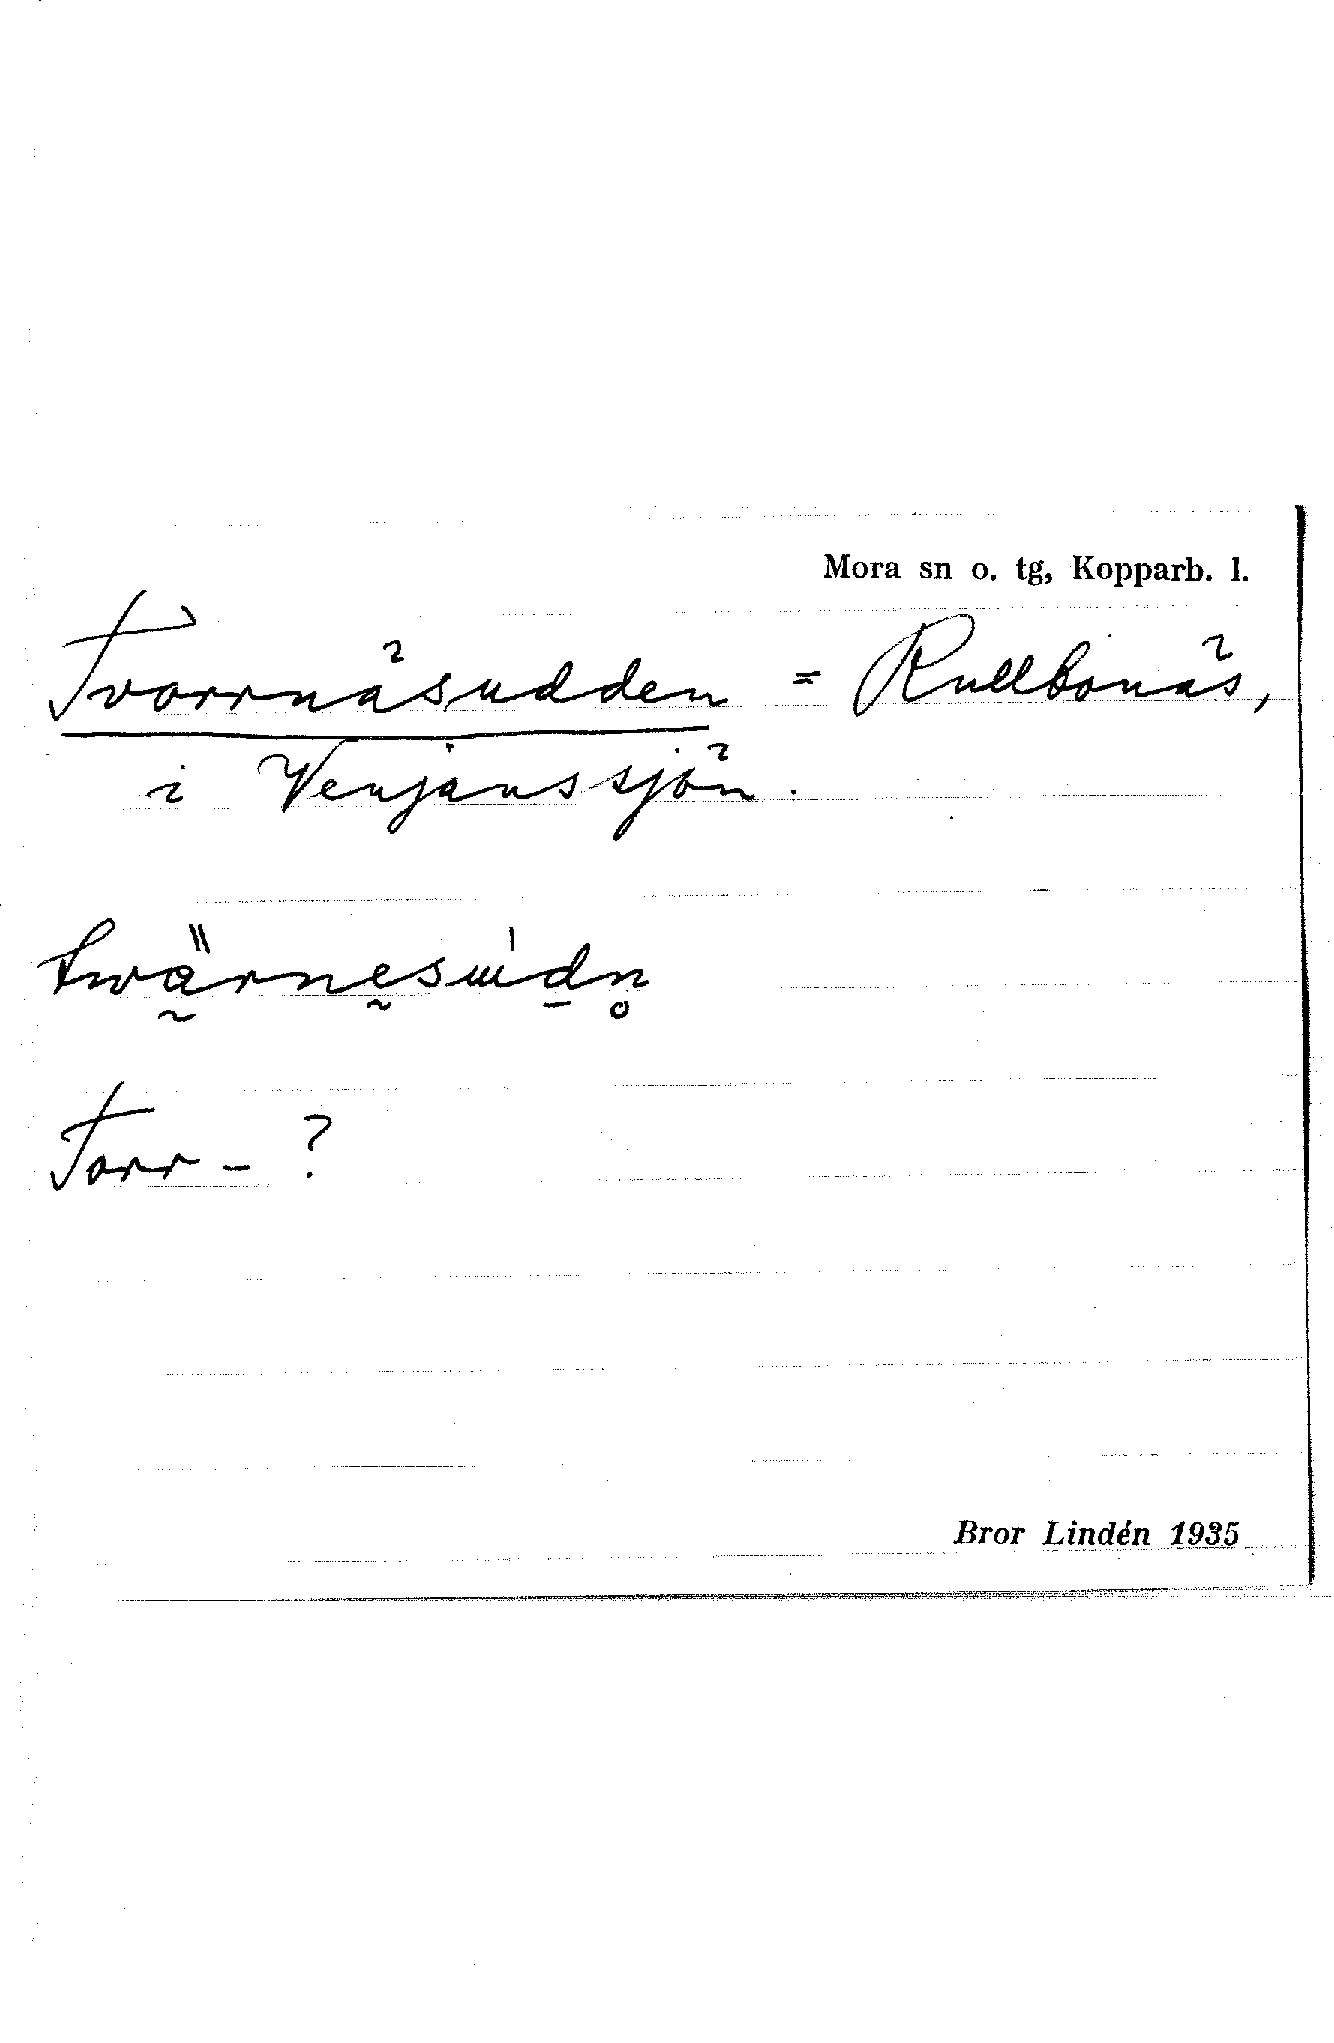 Mora sn o. tg, Kopparb. l.
Tvorrnäsudden = Rullbonäs,
i Venjanssjön.
Torr- ?
Bror Lindén 1935